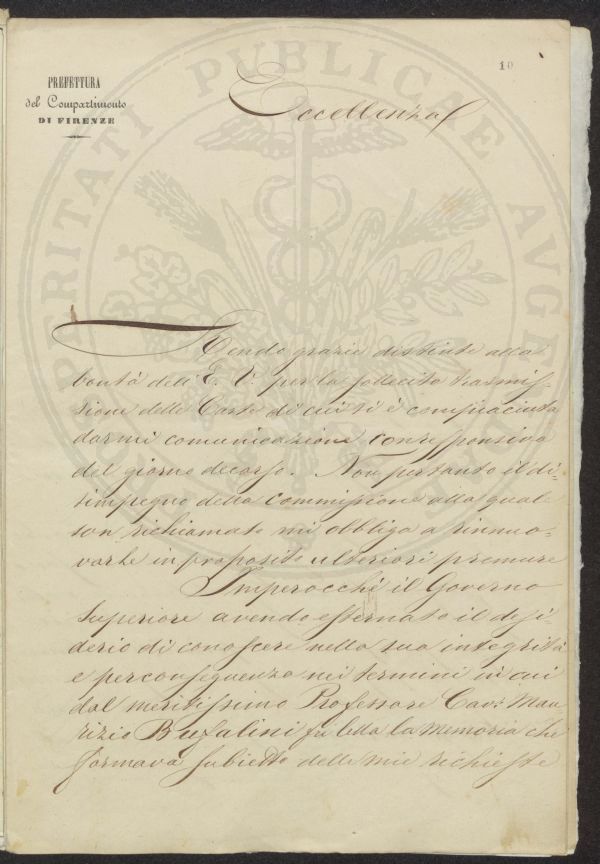 10
PREFETTURA
del Compartimento
DI FIRENZE
Eccellenza
PROSPERITATI PUBLICAE AUGENDAE
Rendo grazie distinte alla
bontà dell' E. V. per la sollecita trasmis-
sione delle Carte di cui si è compiaciuta
darmi comunicazione con responsiva
del giorno decorso. Non pertanto il di-
simpegno della commissione alla quale
son richiamato mi obbliga a rinnuo-
varLe in proposito ulteriori premure
Imperocchè il Governo
Superiore avendo esternato il desi-
derio di conoscere nella sua integrità
e per conseguenza nei termini in cui
dal meritissimo Professore Cav. Mau
rizio Bufalini fu letta la Memoria che
formava subietto delle mie richieste